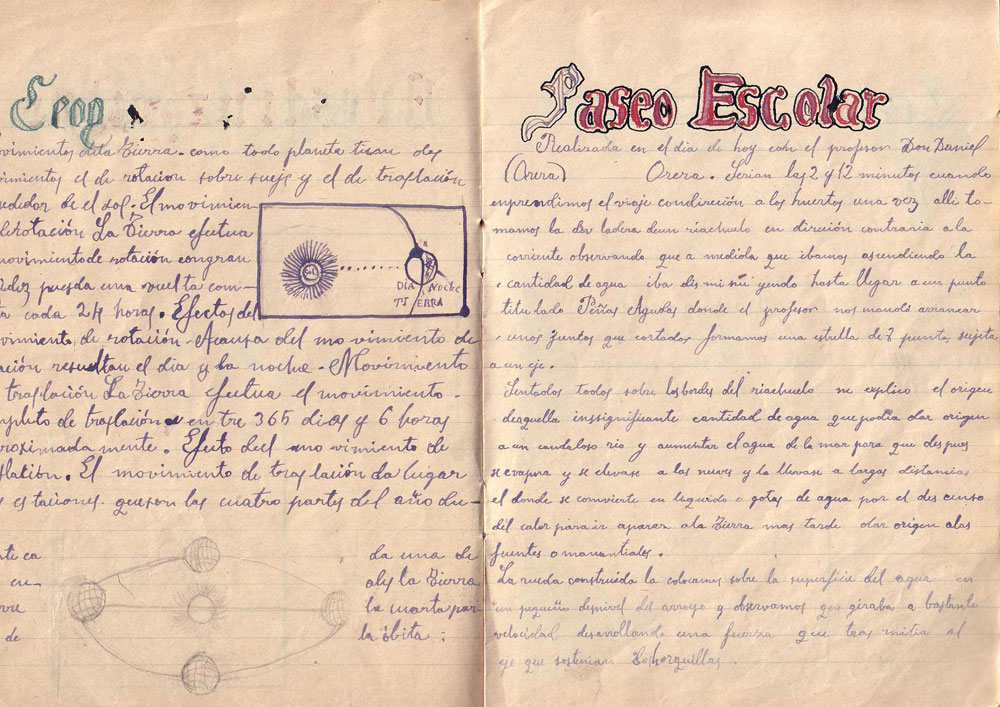 Geog
vimientos de la Tierra. como todo planeta tiene dos
vimientos el de rotacion sobre sueje y el de traslación
rededor de el sol. El movimien-
de rotación La Tierra efectua
movimiento de rotación con gran
dez pues da una vuelta com-
ta cada 24 horas. Efectos del
vimiento de rotación. Acausa del mo vimiento de
ación resultan el dia y la noche. Movimiento
traslación La Tierra efectua el movimiento
mpleto de traslación en tre 365 dias y 6 horas
proximada mente. Efuto del mo vimiento de
slación. El movimiento de traslación da lugar
s estaciones que son las cuatro partes del año du-
nte ca da una de
cu- ales la Tierra
rre la cuarta par
de la óbita.
Sol
DIA Noche
TI ERRA
Paseo Escolar
Realizada en el dia de hoy con el profesor Don Daniel
(Orera) Orera. Serian las 2 y 12 minutos cuando
emprendimos el viaje condireción a los huertos una vez alli to-
mamos la dev ladera deun riachuelo en direción contraria a la
coriente observando que a medida que ibamos ascendiendo la
cantidad de agua iba dis mi nu yendo hasta llegar a un punto
titulado Peñas Agudas donde el profesor nos mando arrancar
unos juntos que cortados formamos una estrella de 8 punts, sujeta
a un eje.
Sentados todos sobre losbordes del riachuelo nos explico el origen
deaquella insignificante cantidad de agua que podia dar origen
a un caudaloso rio y aumentar el agua de la mar para que despues
se evapora y se elevase a las nuves y la llevase a largas distancias
el donde se comvierte en liquido o gotas de agua por el des censo
del calor para ir aparar ala Tierra mas tarde dar origen alas
fuentes o manantiales.
La rueda construida la colocamos sobre la superficie del agua en
un pequeño desnivel del arroyo y observamos que giraba a bastante
velocidad desarollando una fuerza que tras mitia al
eje que sostenian